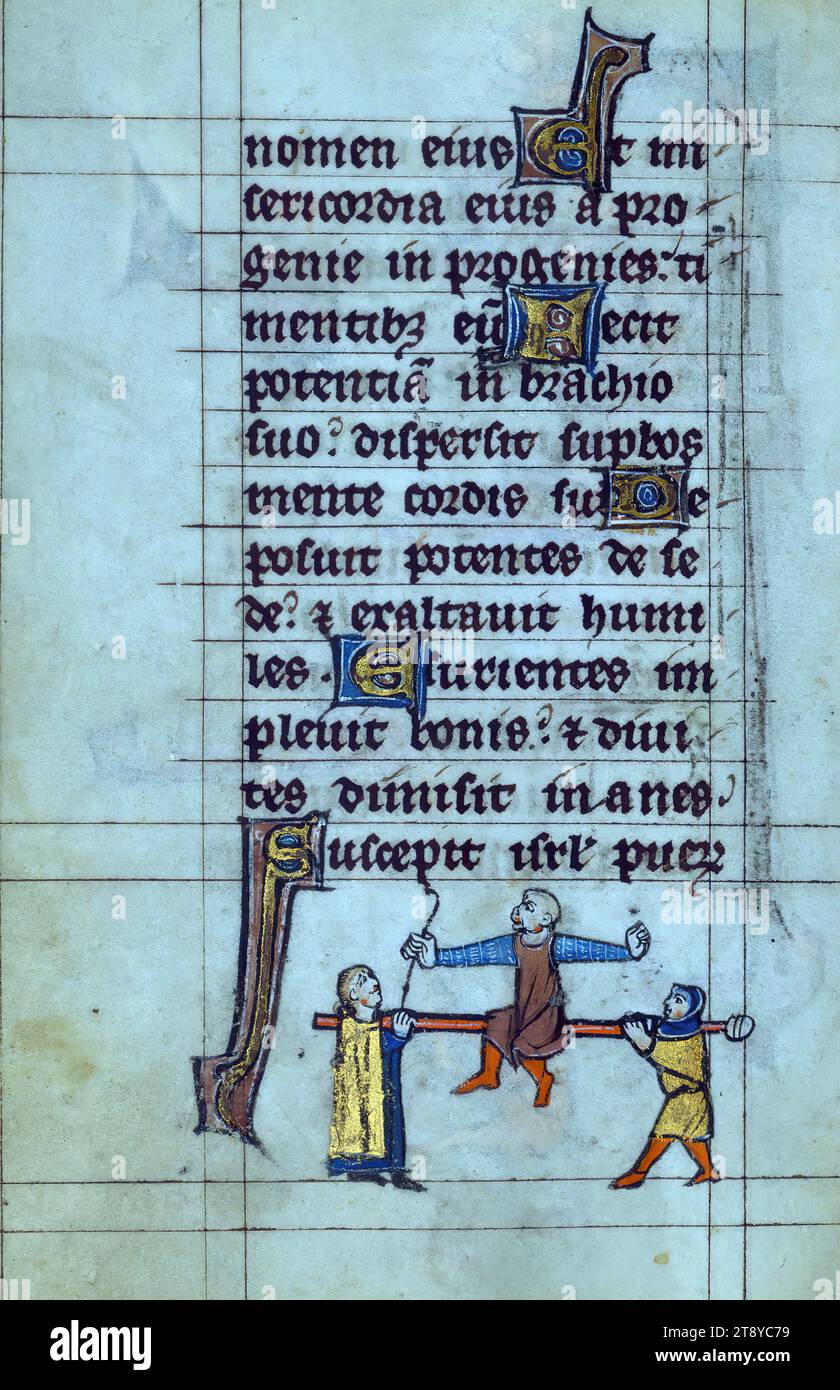 nomen eius Et mi
sericordia eius a pro
genie in progenies: ti
mentibꝫ eū Fecit
potentiā in brachio
suo? dispersit supbos
mente cordis sui De
posuit potentes de se
de? ⁊ exaltauit humi
les. Esurientes im
pleuit bonis? ⁊ diui
tes dimisit inanes
Suscepit isrl' puerꝫ
alamy
Image ID: 2T8YC79
www.alamy.com